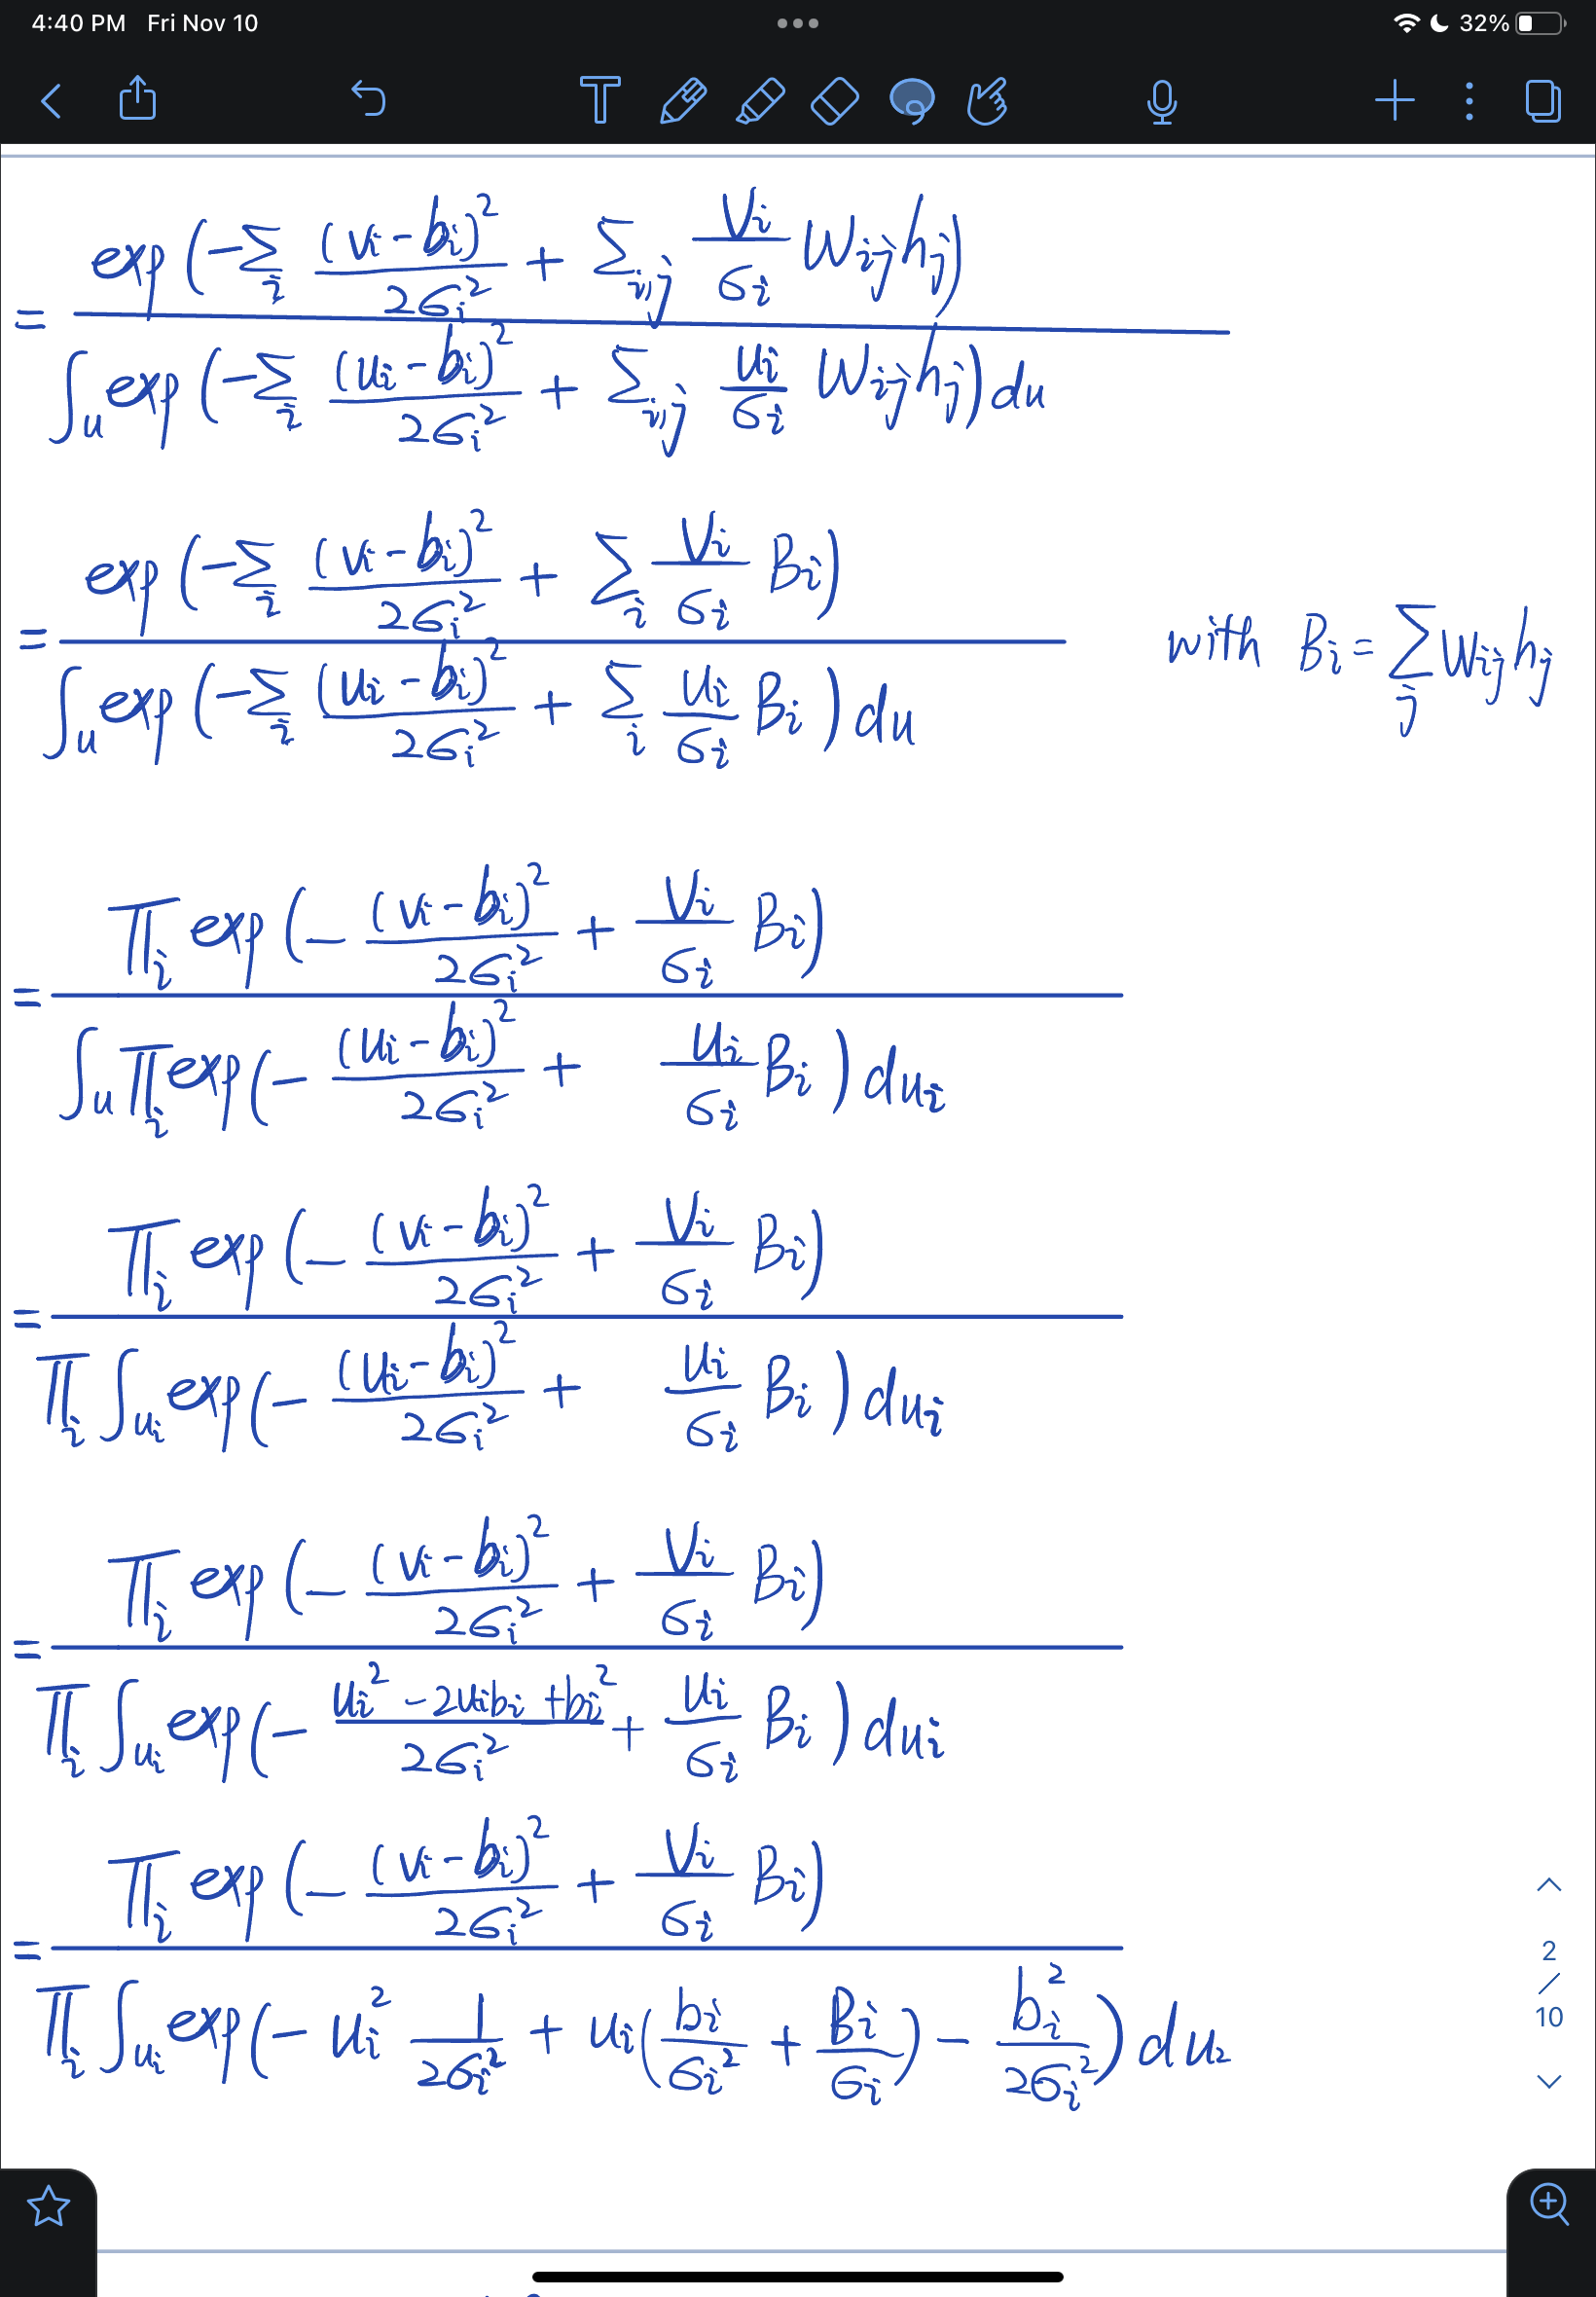 4:40 PM Fri Nov 10 32%
= exp(-∑_i (vi-bi)²/2σi² + ∑_i,j Vi/σi Wijhj) / ∫u exp(-∑_i (ui-bi)²/2σi² + ∑_i,j ui/σi Wijhj) du
= exp(-∑_i (vi-bi)²/2σi² + ∑_i Vi/σi Bi) / ∫u exp(-∑_i (ui-bi)²/2σi² + ∑_i ui/σi Bi) du with Bi = ∑_j Wijhj
= ∏_i exp(- (vi-bi)²/2σi² + Vi/σi Bi) / ∫u ∏_i exp(- (ui-bi)²/2σi² + ui/σi Bi) dui
= ∏_i exp(- (vi-bi)²/2σi² + Vi/σi Bi) / ∏_i ∫ui exp(- (ui-bi)²/2σi² + ui/σi Bi) dui
= ∏_i exp(- (vi-bi)²/2σi² + Vi/σi Bi) / ∏_i ∫ui exp(- ui² - 2uibi + bi²/2σi² + ui/σi Bi) dui
= ∏_i exp(- (vi-bi)²/2σi² + Vi/σi Bi) / ∏_i ∫ui exp(- ui² 1/2σi² + ui(bi/σi² + Bi/σi) - bi²/2σi²) dui
2
/
10